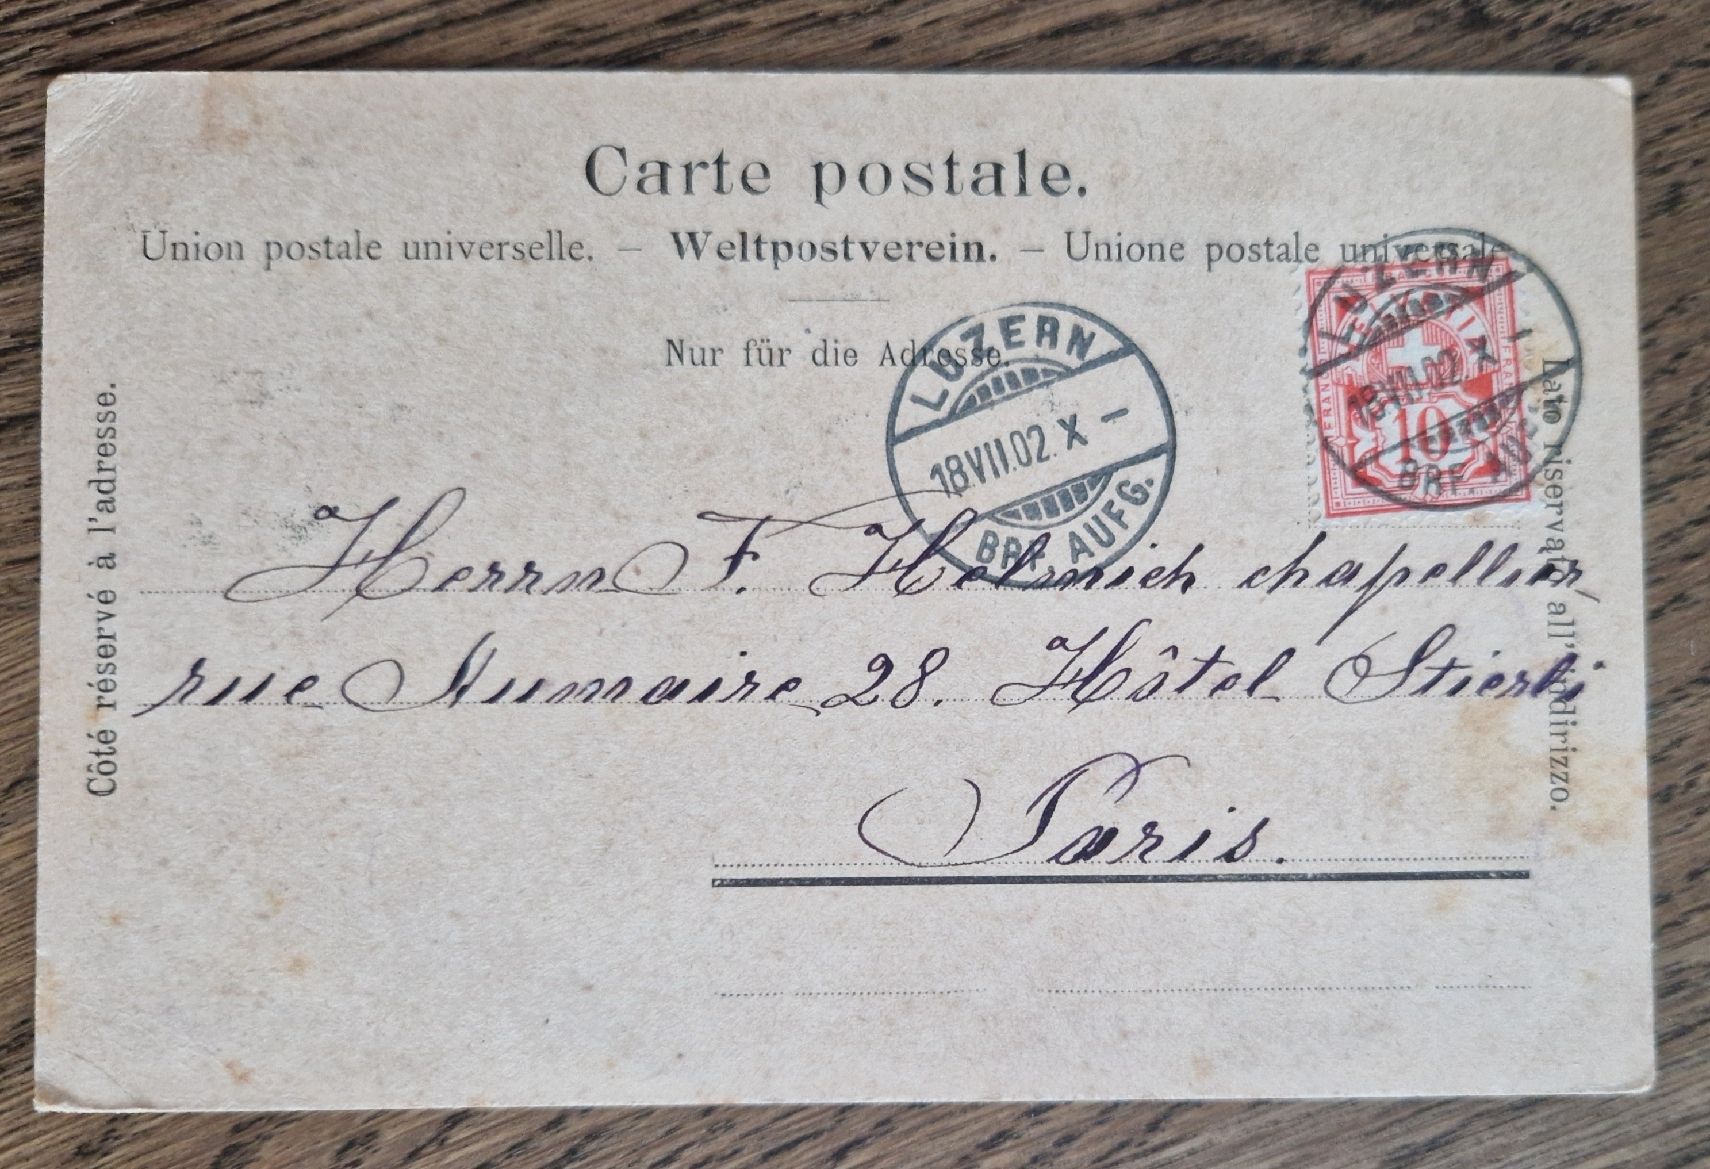 Carte postale.
Union postale universelle. – Weltpostverein. – Unione postale universale
Nur für die Adresse.
LUZERN
18.VII.02.X –
BRF. AUFG.
LUZERN
18.VII.02.X –
BRF. AUFG.
FRANCO
10
Côté réservé à l'adresse.
Lato riservato all'indirizzo.
Herrn F. Helmich chapellier
rue Aumaire 28. Hôtel Stierli
Paris.